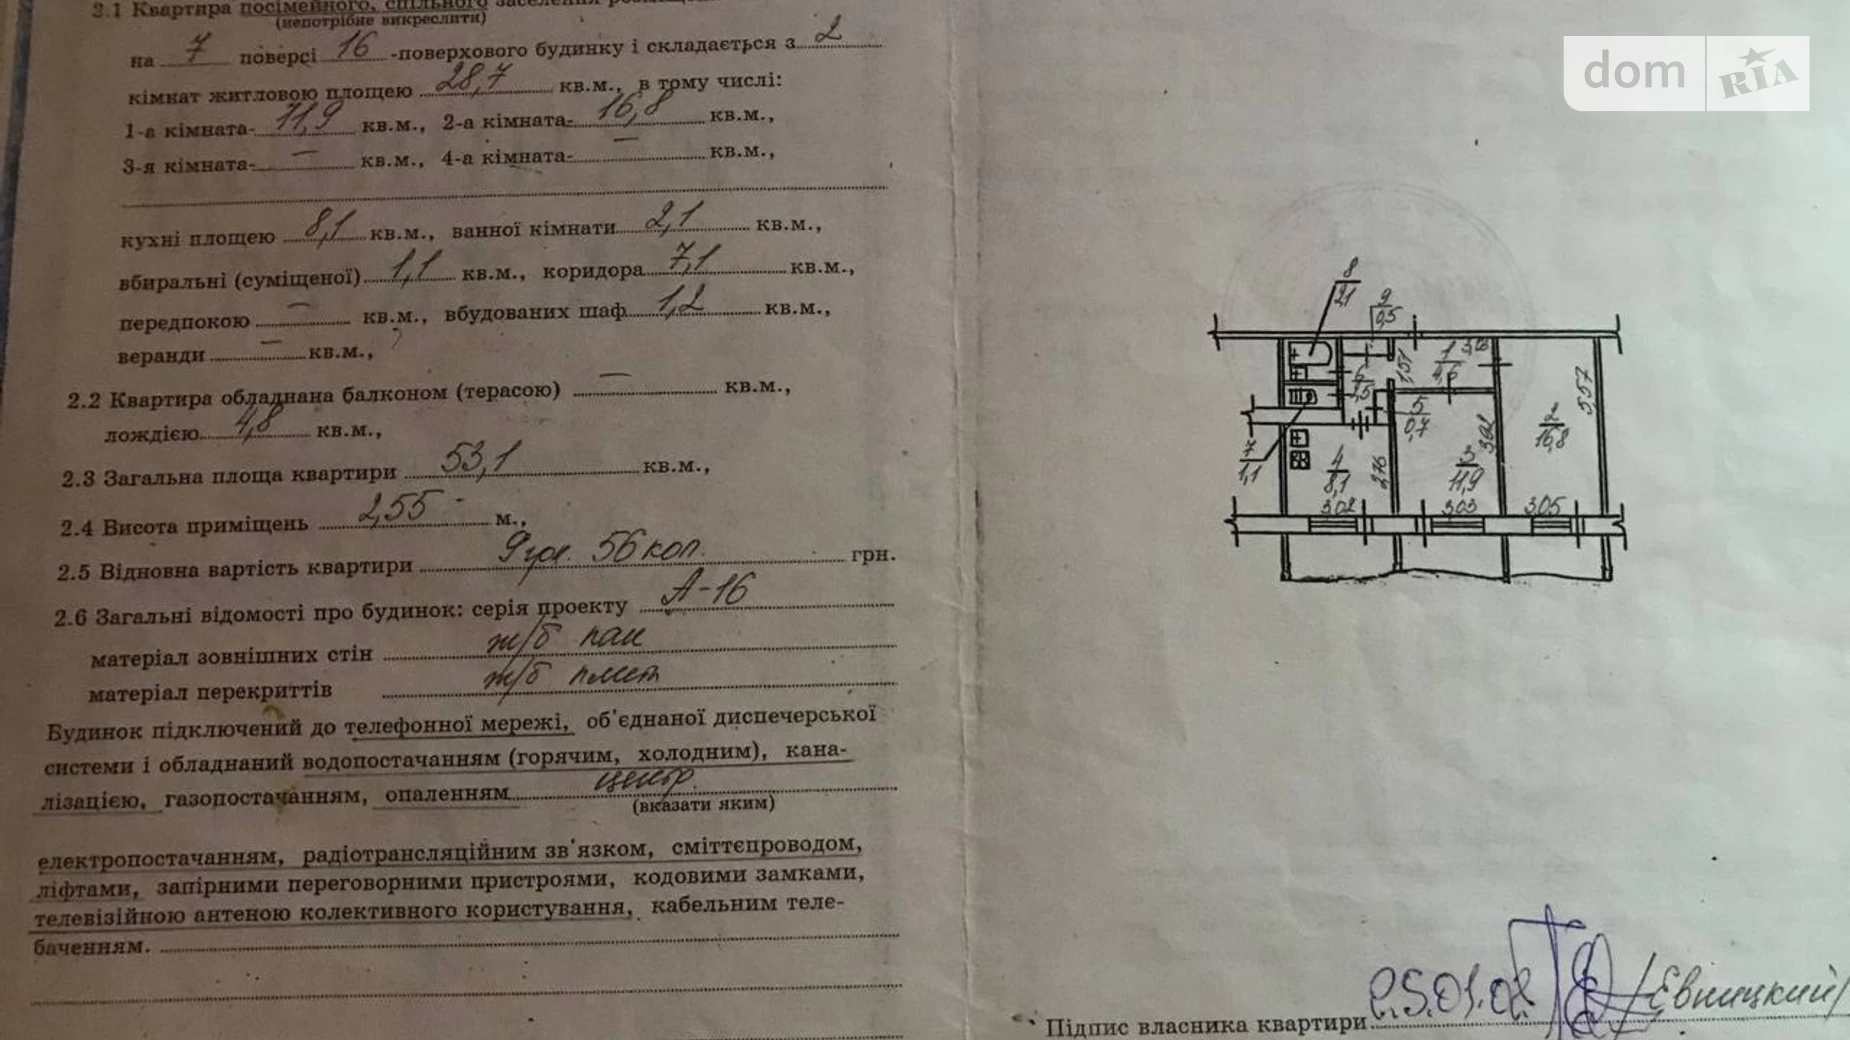 2.1 Квартира посімейного, спільного заселення
(непотрібне викреслити)
на 7 поверсі 16 -поверхового будинку і складається з 2
кімнат житловою площею 28,7 кв.м., в тому числі:
1-а кімната- 11,9 кв.м., 2-а кімната- 16,8 кв.м.,
3-я кімната- — кв.м., 4-а кімната- — кв.м.,
кухні площею 8,1 кв.м., ванної кімнати 2,1 кв.м.,
вбиральні (суміщеної) 1,1 кв.м., коридора 7,1 кв.м.,
передпокою — кв.м., вбудованих шаф 1,2 кв.м.,
веранди — кв.м.,
2.2 Квартира обладнана балконом (терасою) — кв.м.,
лождією 4,8 кв.м.,
2.3 Загальна площа квартири 53,1 кв.м.,
2.4 Висота приміщень 2,55 м.,
2.5 Відновна вартість квартири 56 коп. грн.
2.6 Загальні відомості про будинок: серія проекту А-16
матеріал зовнішних стін ж/б пан
матеріал перекриттів ж/б
Будинок підключений до телефонної мережі, об'єднаної диспечерської
системи і обладнаний водопостачанням (горячим, холодним), кана-
лізацією, газопостачанням, опаленням центр.
(вказати яким)
електропостачанням, радіотрансляційним зв'язком, сміттєпроводом,
ліфтами, запірними переговорними пристроями, кодовими замками,
телевізійною антеною колективного користування, кабельним теле-
баченням.
dom RIA
8
2,1
9
0,5
1
4,6
3,03
1,51
6
2,5
5
0,7
3,92
2
16,8
5,57
7
1,1
4
8,1
2,76
3
11,9
3.02
3.03
3.05
Підпис власника квартири 25.01.02